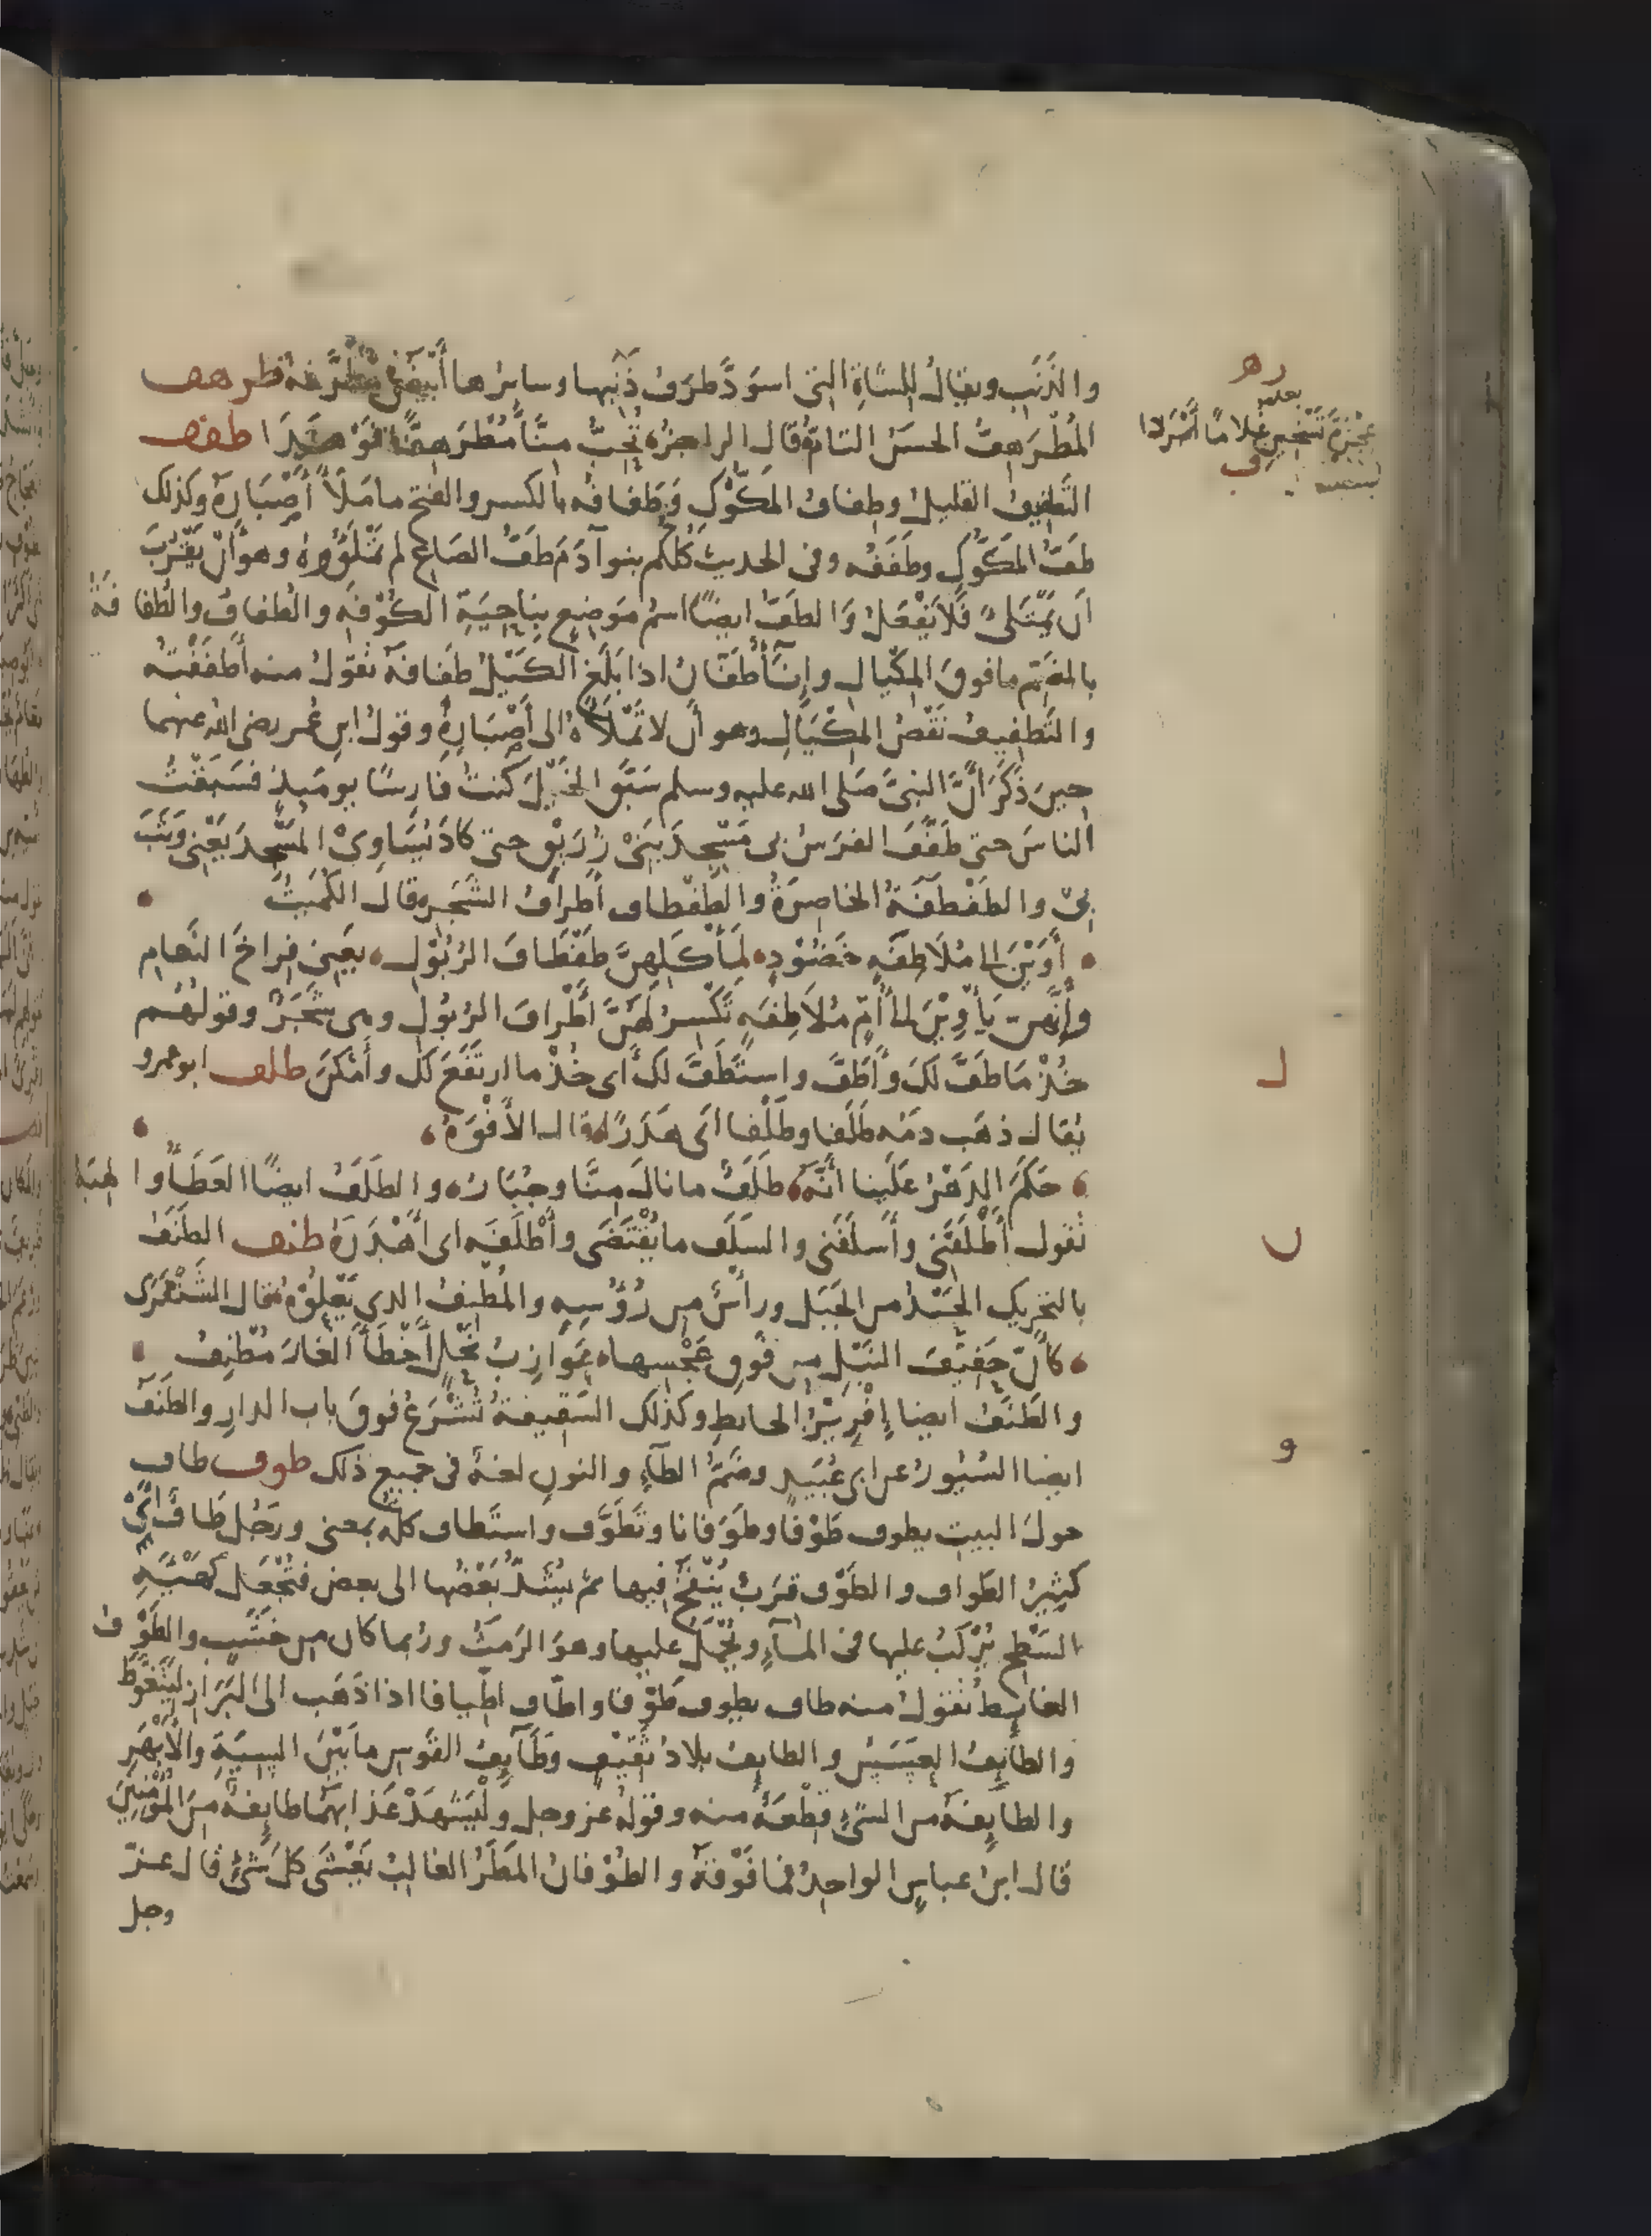 والذَنَبِ ويقالُ للشاةِ التى اسوَدَّ طرَفُ ذَنَبِها وسايرُها أبْيَضُ مُطَرَّفةٌ طرهف
المُطْرَهِفُّ الحسَنُ التامّ قال الراجز تُحِبُّ مِنّا مُطْرَهِفًّا فَوْهَدَا طفف
الطَفيفُ القليلُ وطِفافُ المَكّوْكِ وَطَفافُه بالكسر والفتح ما مَلَأَ أَصْبَارَهُ وكذلك
طَفُّ المَكّوكِ وطَفَفُه وفى الحديث كُلّكُم بنوآدَمَ طَفُّ الصَاعِ لم تَمْلَؤُوهُ وهو أَنْ يَقْرُبَ
أَن يَمْتَلِئَ فَلا يَفْعَلُ وَالطَفُّ ايضًا اسمُ مَوَضِعٍ بِناحِيَةِ الكُوْفَةِ والطُفافُ والطُفافَةُ
بالضَمِّ ما فوقَ المِكْيَالِ وإِنَآءٌ طَفَّانُ اذا بَلَغَ الكَيْلُ طَفَافَهُ تقولُ منه أَطْفَفْتُه
والتَطفِيفُ نَقْصُ المِكْيَالِ وهو أَن لا تَمْلَأَهُ الى أَصْبَارِهِ وقولُ ابنِ عُمر رضى الله عنهما
حِينَ ذَكَرَ أَنَّ النبىَّ صَلى الله عليه وسلم سَبَّقَ الخَيْلَ كنتُ فَارِسًا يومَيِذٍ فسَبَقْتُ
الناسَ حتى طَفَّفَ الفرَسُ بى مَسْجِدَ بَنِىْ زُرَيْقٍ حتى كادَ يُسَاوِىْ المَسْجِدَ يَعْنِى وَثَبَ
بِىْ والطَفْطَفَةُ الخاصِرَةُ والطَفْطاف أَطرافُ الشَجَرِ قال الكُمَيْتُ
أَوَيْنَ الى مُلَاطِفَةٍ خَضُوْدٍ لِمَأْكَلِهِنَّ طَفْطَافَ الرُبُوْلِ يعنِى فِراخَ النَعَامِ
وأَنَّهن يَأْوِيْنَ الى أُمٍّ مُلاَطِفَةٍ تُكَسِّرُ لَهُنَّ أَطْرافَ الرُبُوْلِ وهى شَجَرٌ وقولُهُم
خُذْ مَا طَفَّ لَكَ وأَطَفَّ واسْتَطَفَّ لَكَ أى خُذْ ما ارتَفَعَ لكَ وأَمْكَنَ طلف ابو عمرو
يُقال ذهَب دَمُه طَلَفا وطَلْفا أى هَدَرًا قال الأَفْوَهُ
حَكَمَ الدَهْرُ عَلَينا أَنَّهُ طَلَفٌ ما نالَ مِنَّا وجُبَارُ والطَلَفُ ايضًا العَطَأُ والهِبَةُ
تقول أَطْلَفَنِى وأَسلَفَنِى والسَلَف ما يُقْتَضَى وأَطْلَفَه اى أَهْدَرَهُ طنف الطَنَفُ
بالتحريكِ الحَيْدُ من الجَبَل ورأسٌ مِن رُؤُسِهِ والمُطْنِفُ الذى يَعْلُوْهُ قال الشَنْفَرَى
كأَنّ حَفِيْفَ النَبْلِ مِن فَوْقِ عَجْسِها عَوَازِبُ نَحْلٍ أَخْطَأَ الغارَ مُطْنِفُ
والطَنَفُ ايضا إِفْرِيْزُ الحايطِ وكذلك السَقِيفةُ تُشْرَعُ فوقَ باب الدارِ والطَنَفُ
ايضا السُيُورُ عن ابى عُبَيدٍ وضَمُّ الطآءِ والنونِ لغةٌ فى جميع ذلك طوف طاف
حولَ البيت يطوف طَوْفًا وطَوَفانا وتَطَوَّف واستَطاف كله بمعنى ورجُل طَافٌ أَىْ
كثيرُ الطواف والطَوْف قِرَبٌ يُنْفَخُ فيها ثم يُشَدُّ بَعْضُها الى بعض فتُجْعَل كَهَيْئَةِ
السَطْحِ يُرْكَبُ عليها فى المآءِ ويُحْمَلُ عليها وهوَ الرَمَثُ ورُبما كان من خَشَبٍ والطَوْفُ
الغايط تقولُ منه طاف يطوف طَوْفا واطّاف اطّيافا اذا ذَهَب الى البَرَازِ لِيَتَغَوَّط
والطآيِفُ العَسَسُ والطايف بلادُ ثَقِيْفٍ وطَآيِفُ القَوسِ ما بَيْنَ السِيَةِ والأَبْهَرِ
والطايِفَةُ من الشىْءِ قِطْعَةٌ منه وقولهُ عز وجل ولْيَشْهَدْ عَذَابَهُمَا طايِفةٌ مِنَ المُؤْمِنِينَ
قال ابنُ عباسٍ الواحِدُ فما فَوْقَهُ والطُوْفانُ المطَرُ الغالبُ يَغْشَى كلّ شىْءٍ قال عزّ
وجل
ره
عُجْزَةَ شَيْخَيْنِ غُلامًا أَمْرَدا
ف
ل
ن
و